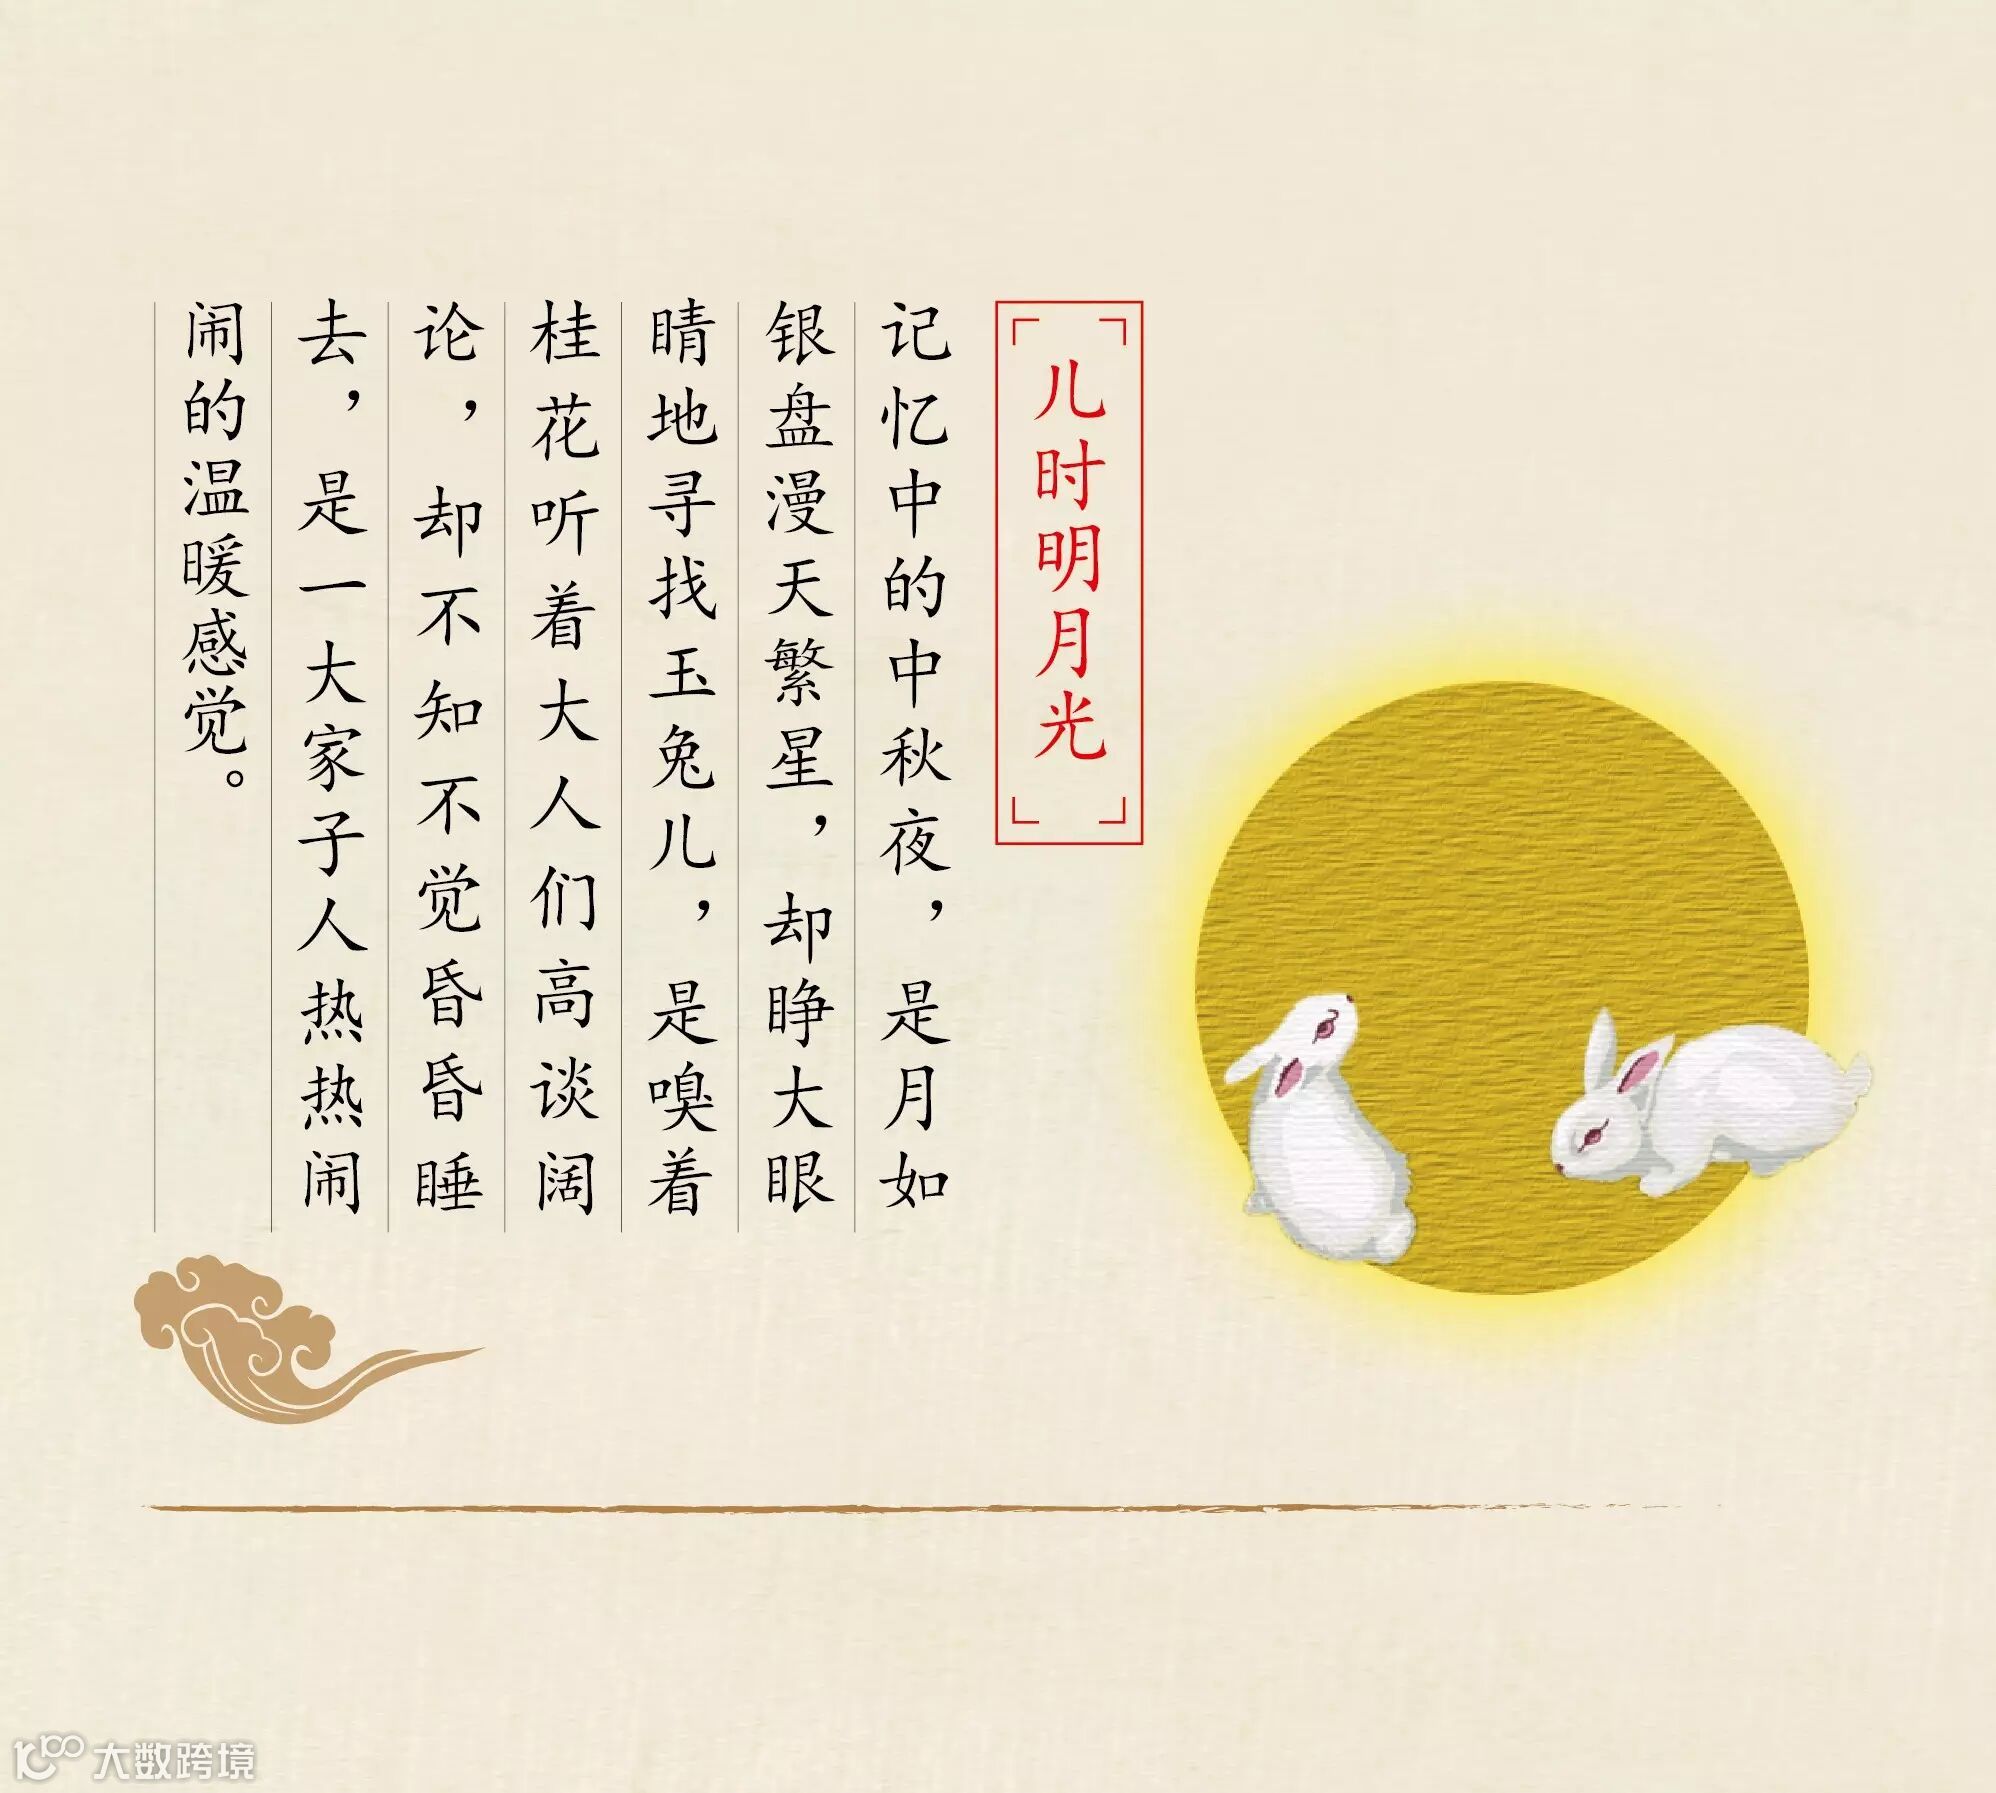 儿时明月光
记忆中的中秋夜，是月如
银盘漫天繁星，却睁大眼
睛地寻找玉兔儿，是嗅着
桂花听着大人们高谈阔
论，却不知不觉昏昏睡
去，是一大家子人热热闹
闹的温暖感觉。
大数跨境